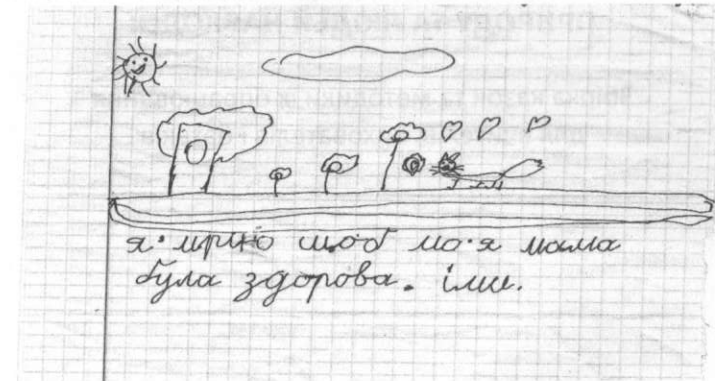 я мрію щоб моя мама
була здорова. іми.